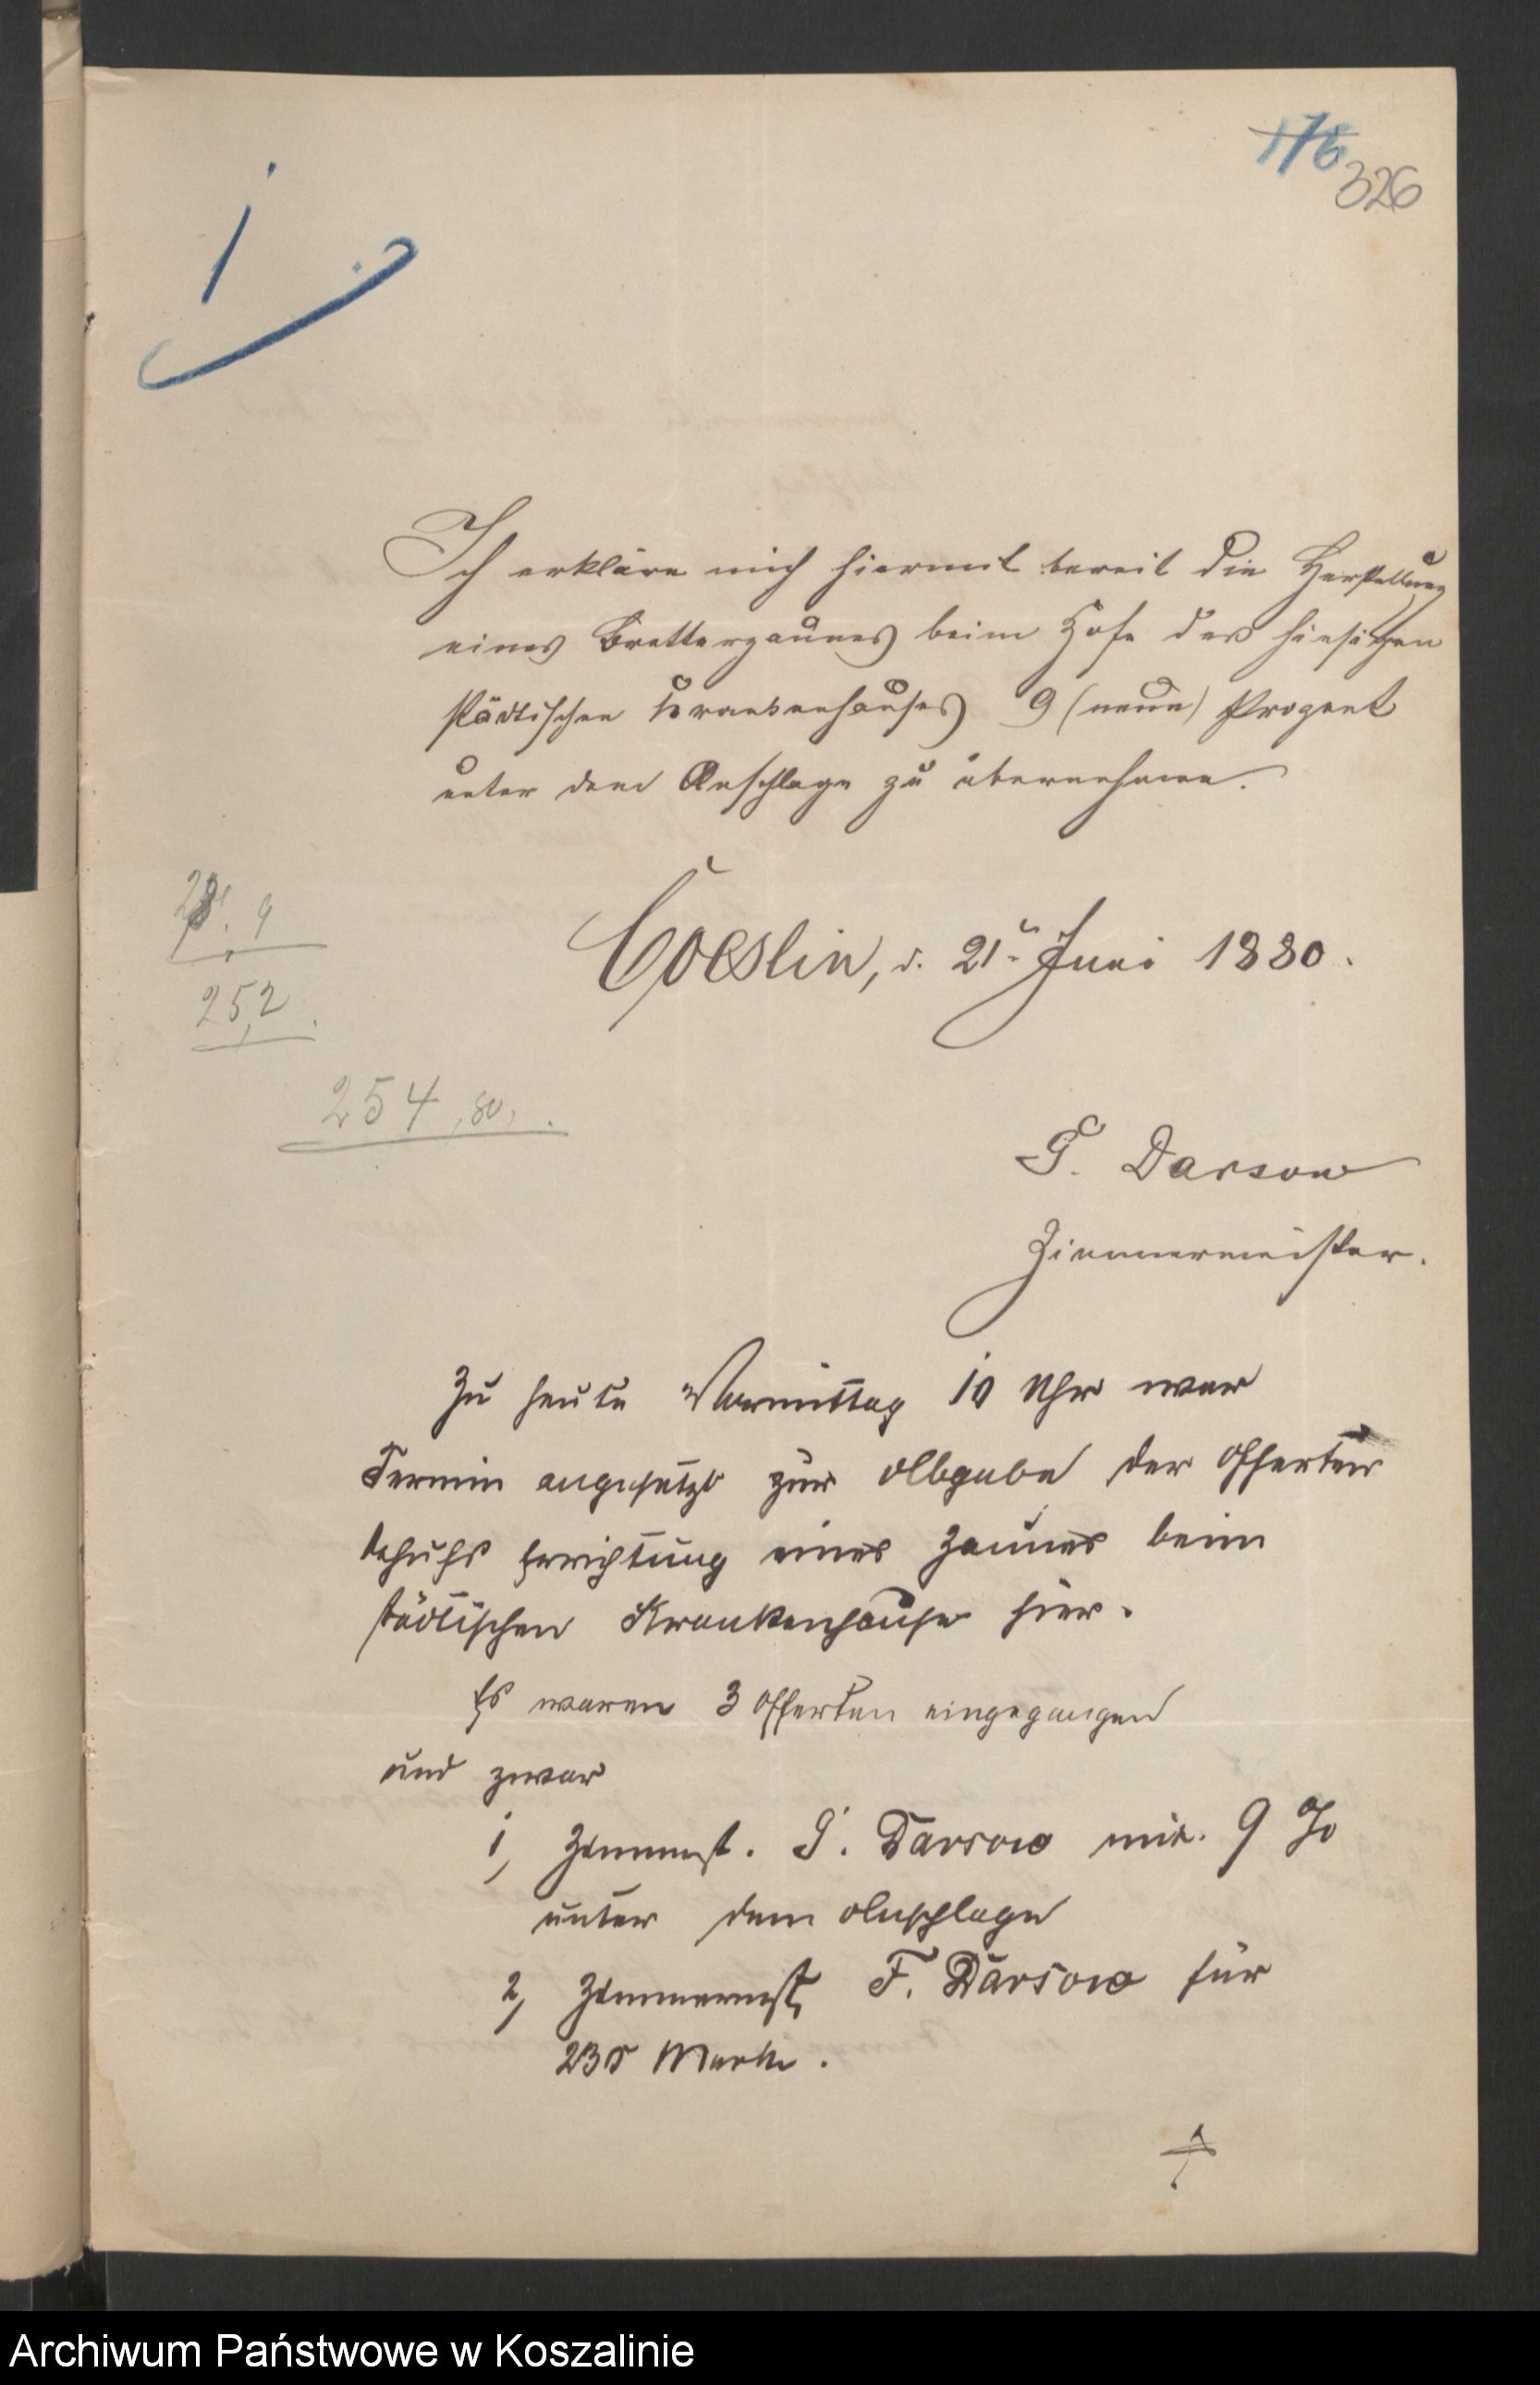 176
326
1
Ich erkläre mich hiermit bereit die Herstellung
eines Bretterzaunes beim Hofe des hiesigen
städtischen Krankenhauses 9 (neun) Prozent
unter dem Anschlage zu übernehmen.
28. 9
25,2
Coeslin, d. 21ten Juni 1880.
254,80.
G. Darsow
Zimmermeister.
Zu heute Vormittag 10 Uhr war
Termin angesetzt zur Abgabe der Offerten
behufs Errichtung eines Zaunes beim
städtischen Krankenhause hier.
Es waren 3 Offerten eingegangen
und zwar
1, Zimmerst. G. Darsow mit 9 %
unter dem Anschlage
2, Zimmermst. F. Darsow für
235 Mark.
Archiwum Państwowe w Koszalinie